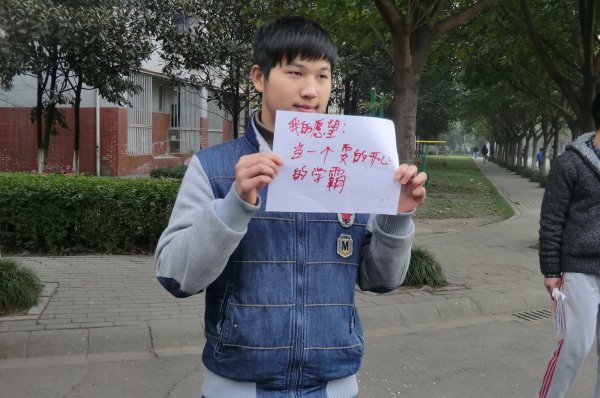 我的愿望:
当一个耍的开心
的学霸
M